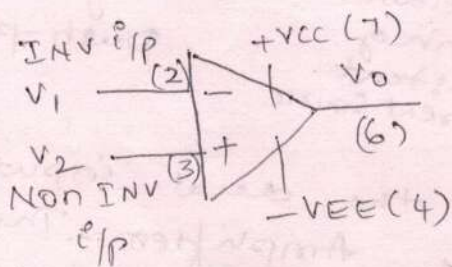 INV i/p
+VCC (7)
(2)
V1
-
VO
V2
(3)
+
(6)
NON INV
i/p
-VEE (4)